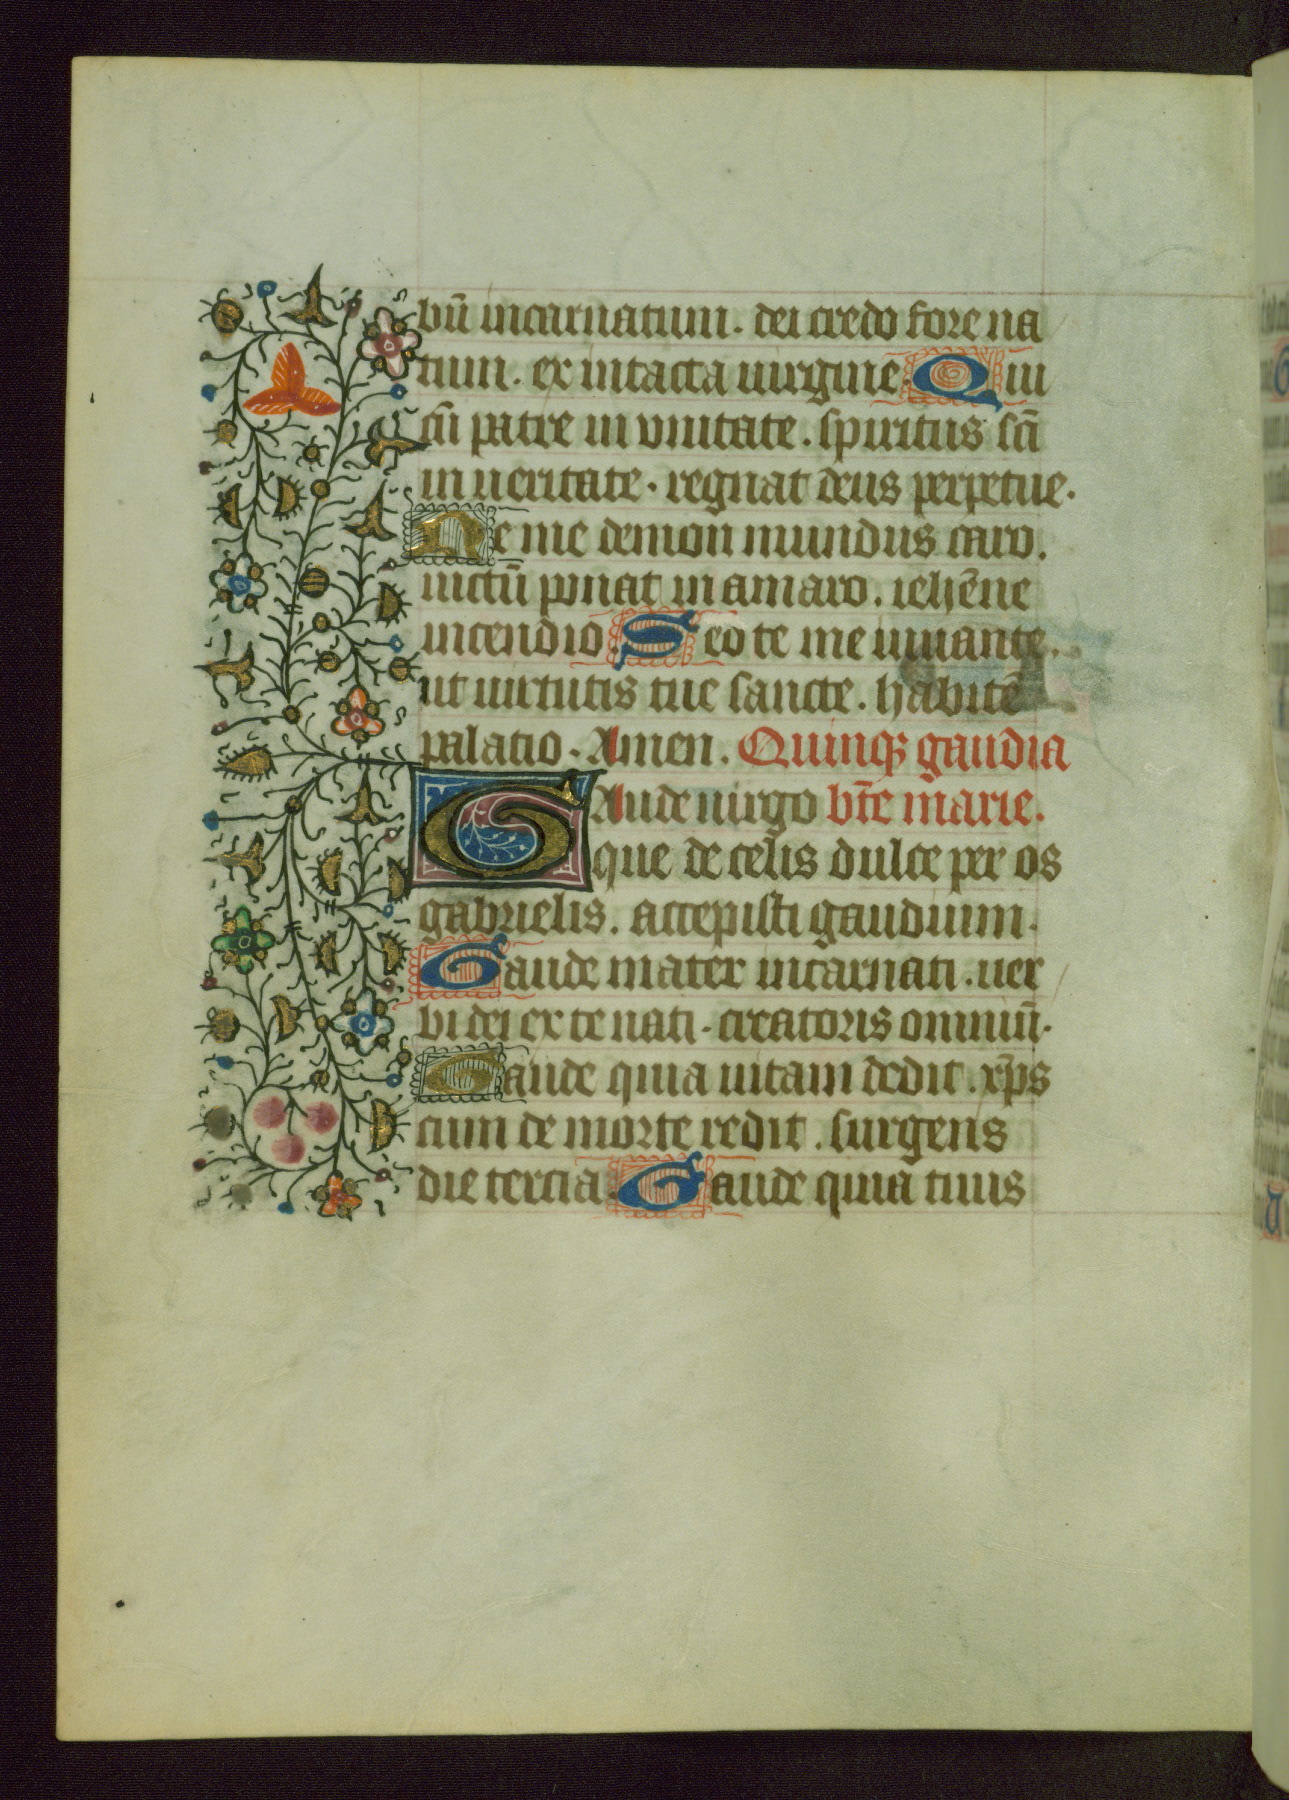 bū incarnatum. dei credo fore na
tum. ex intacta uirgine. Qui
cū patre in vnitate. spiritus scī
in ueritate. regnat deus perpetue.
Ne me demon mundus caro.
uictū ponat in amaro. iehēne
incendio. Sed te me iuuante.
ut uirtutis tue sancte. habitē
palatio. Amen. Quinqȝ gaudia
GAude uirgo bt̄e marie.
que de celis dulce per os
gabrielis. accepisti gaudium.
Gaude mater incarnati. uer
bi dei ex te nati. creatoris omniū.
Gaude quia uitam dedit. xp̄s
cum de morte redit. surgens
die tercia. Gaude quia tuus